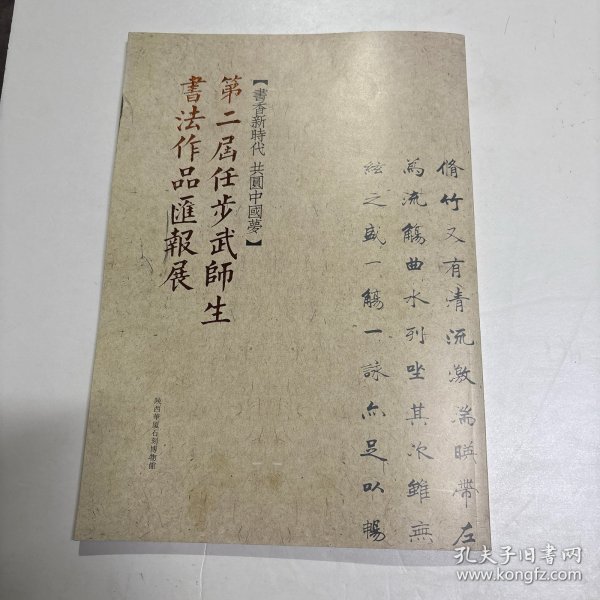 【書香新時代 共圓中國夢】
第二屆任步武師生
書法作品匯報展
脩竹又有清流激湍暎帶左
為流觴曲水列坐其次雖無
絃之盛一觴一詠亦足以暢
陝西華夏石刻博物館
孔夫子旧书网
www.kongfz.com